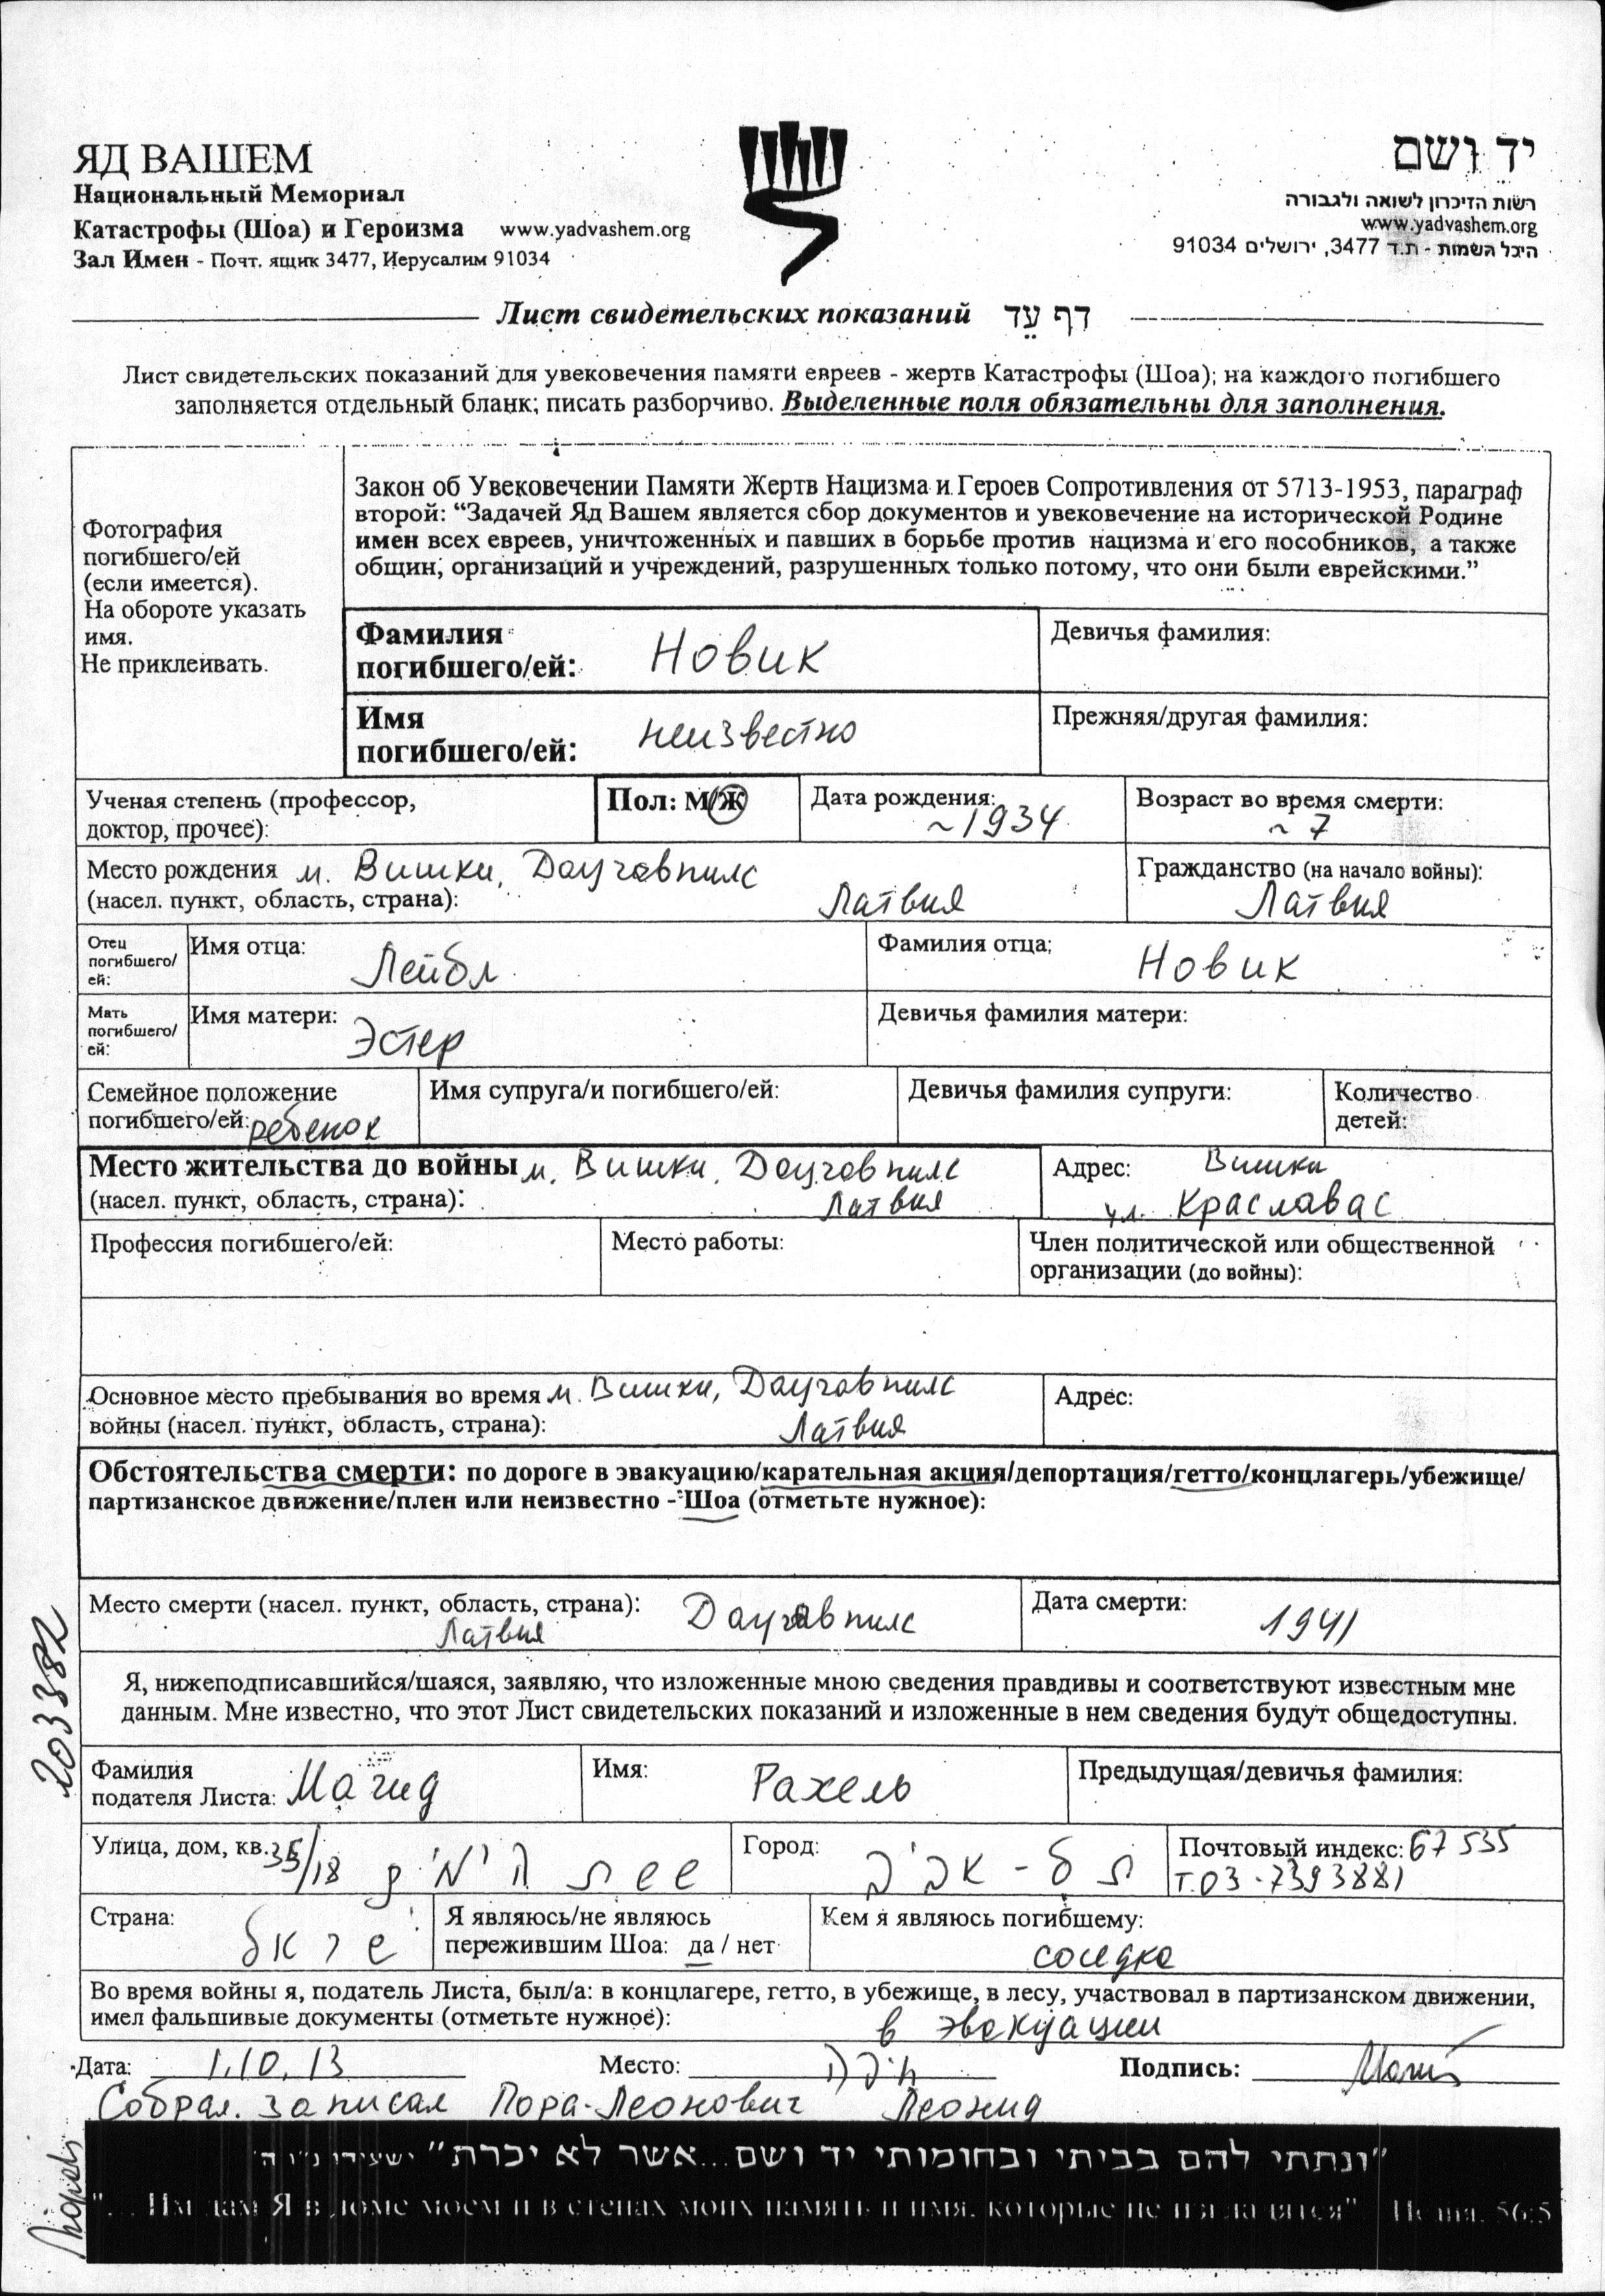 ЯД ВАШЕМ
Национальный Мемориал
Катастрофы (Шоа) и Героизма www.yadvashem.org
Зал Имен - Почт. ящик 3477, Иерусалим 91034
יד ושם
רשות הזיכרון לשואה ולגבורה
www.yadvashem.org
היכל השמות - ת.ד 3477, ירושלים 91034
Лист свидетельских показаний דף עד
Лист свидетельских показаний для увековечения памяти евреев - жертв Катастрофы (Шоа); на каждого погибшего
заполняется отдельный бланк; писать разборчиво. Выделенные поля обязательны для заполнения.
Фотография
погибшего/ей
(если имеется).
На обороте указать
имя.
Не приклеивать.
Закон об Увековечении Памяти Жертв Нацизма и Героев Сопротивления от 5713-1953, параграф
второй: “Задачей Яд Вашем является сбор документов и увековечение на исторической Родине
имен всех евреев, уничтоженных и павших в борьбе против нацизма и его пособников, а также
общин, организаций и учреждений, разрушенных только потому, что они были еврейскими.”
Фамилия
погибшего/ей: Новик
Девичья фамилия:
Имя
погибшего/ей: неизвестно
Прежняя/другая фамилия:
Ученая степень (профессор,
доктор, прочее):
Пол: М/Ж
Дата рождения:
~1934
Возраст во время смерти:
~ 7
Место рождения м. Вишки, Даугавпилс
(насел. пункт, область, страна): Латвия
Гражданство (на начало войны):
Латвия
Отец
погибшего/
ей:
Имя отца: Лейбл
Фамилия отца: Новик
Мать
погибшего/
ей:
Имя матери: Эстер
Девичья фамилия матери:
Семейное положение
погибшего/ей: ребенок
Имя супруга/и погибшего/ей:
Девичья фамилия супруги:
Количество
детей:
Место жительства до войны м. Вишки, Даугавпилс
(насел. пункт, область, страна): Латвия
Адрес: Вишки
ул. Краславас
Профессия погибшего/ей:
Место работы:
Член политической или общественной
организации (до войны):
Основное место пребывания во время м. Вишки, Даугавпилс
войны (насел. пункт, область, страна): Латвия
Адрес:
Обстоятельства смерти: по дороге в эвакуацию/карательная акция/депортация/гетто/концлагерь/убежище/
партизанское движение/плен или неизвестно - Шоа (отметьте нужное):
Место смерти (насел. пункт, область, страна): Даугавпилс
Латвия
Дата смерти:
1941
Я, нижеподписавшийся/шаяся, заявляю, что изложенные мною сведения правдивы и соответствуют известным мне
данным. Мне известно, что этот Лист свидетельских показаний и изложенные в нем сведения будут общедоступны.
Фамилия
подателя Листа: Магид
Имя: Рахель
Предыдущая/девичья фамилия:
Улица, дом, кв. 35/18 ששת הימים
Город: תל-אביב
Почтовый индекс: 67535
Т.03-7393881
Страна:
Я являюсь/не являюсь
пережившим Шоа: да / нет
Кем я являюсь погибшему:
соседка
Во время войны я, податель Листа, был/а: в концлагере, гетто, в убежище, в лесу, участвовал в партизанском движении,
имел фальшивые документы (отметьте нужное): в эвакуации
Дата: 1.10.13 Место: Подпись:
Собрал. записал Пора-Леонович Леонид
203382
"ונתתי להם בביתי ובחומותי יד ושם...אשר לא יכרת" ישעיהו נ"ו ה'
"... Им дам Я в доме моем и в стенах моих память и имя, которые не изгладятся" Исаия, 56:5